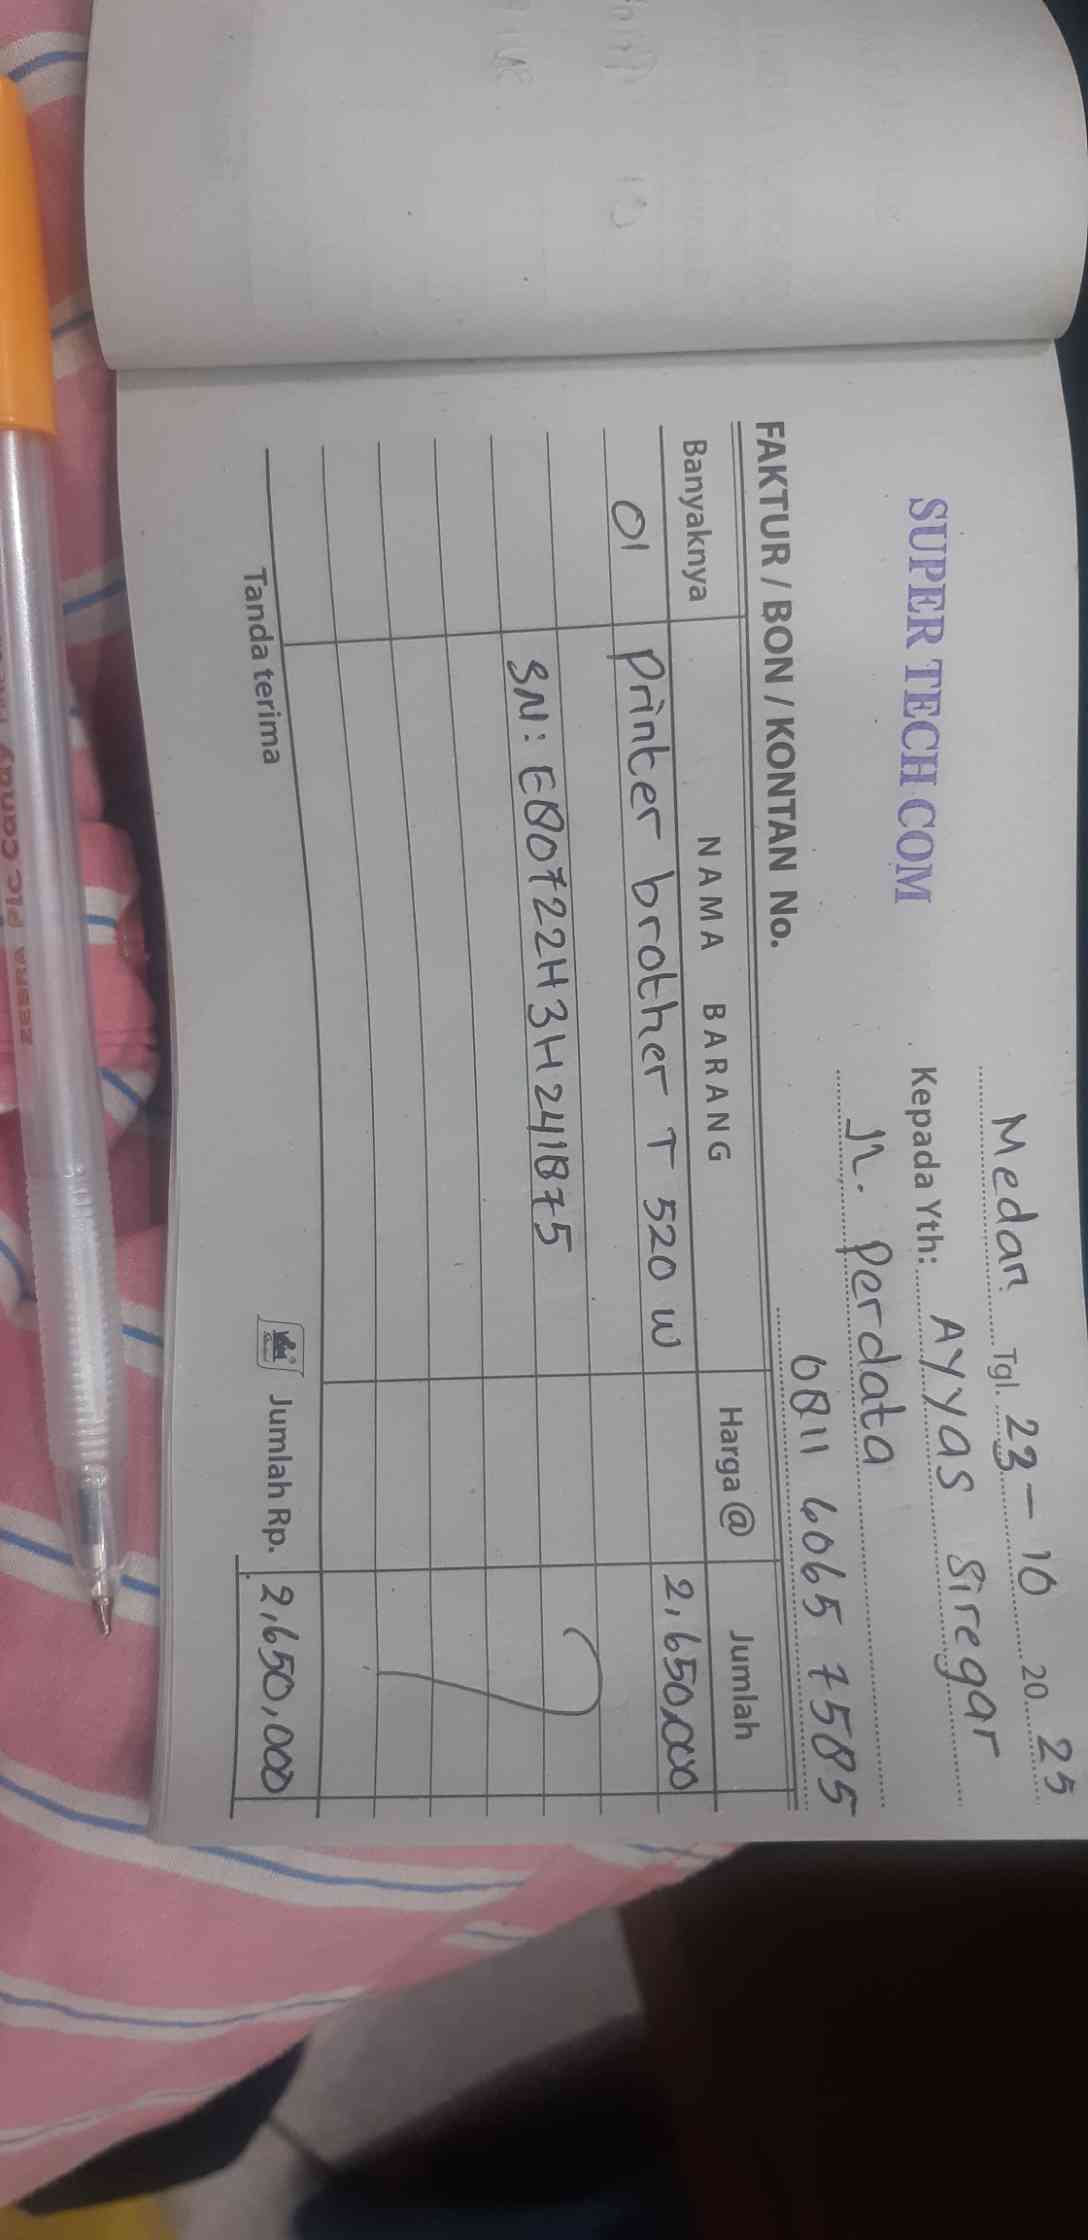 SUPER TECH COM
Medan Tgl. 23 - 10 20 25
Kepada Yth: Ayyas Siregar
Jl. Perdata
0811 6065 7585
FAKTUR / BON / KONTAN No.
Banyaknya NAMA BARANG Harga @ Jumlah
01 Printer brother T 520 W 2,650,000
SN: E80722H3H241875
Tanda terima Jumlah Rp. 2,650,000
ZEBRA